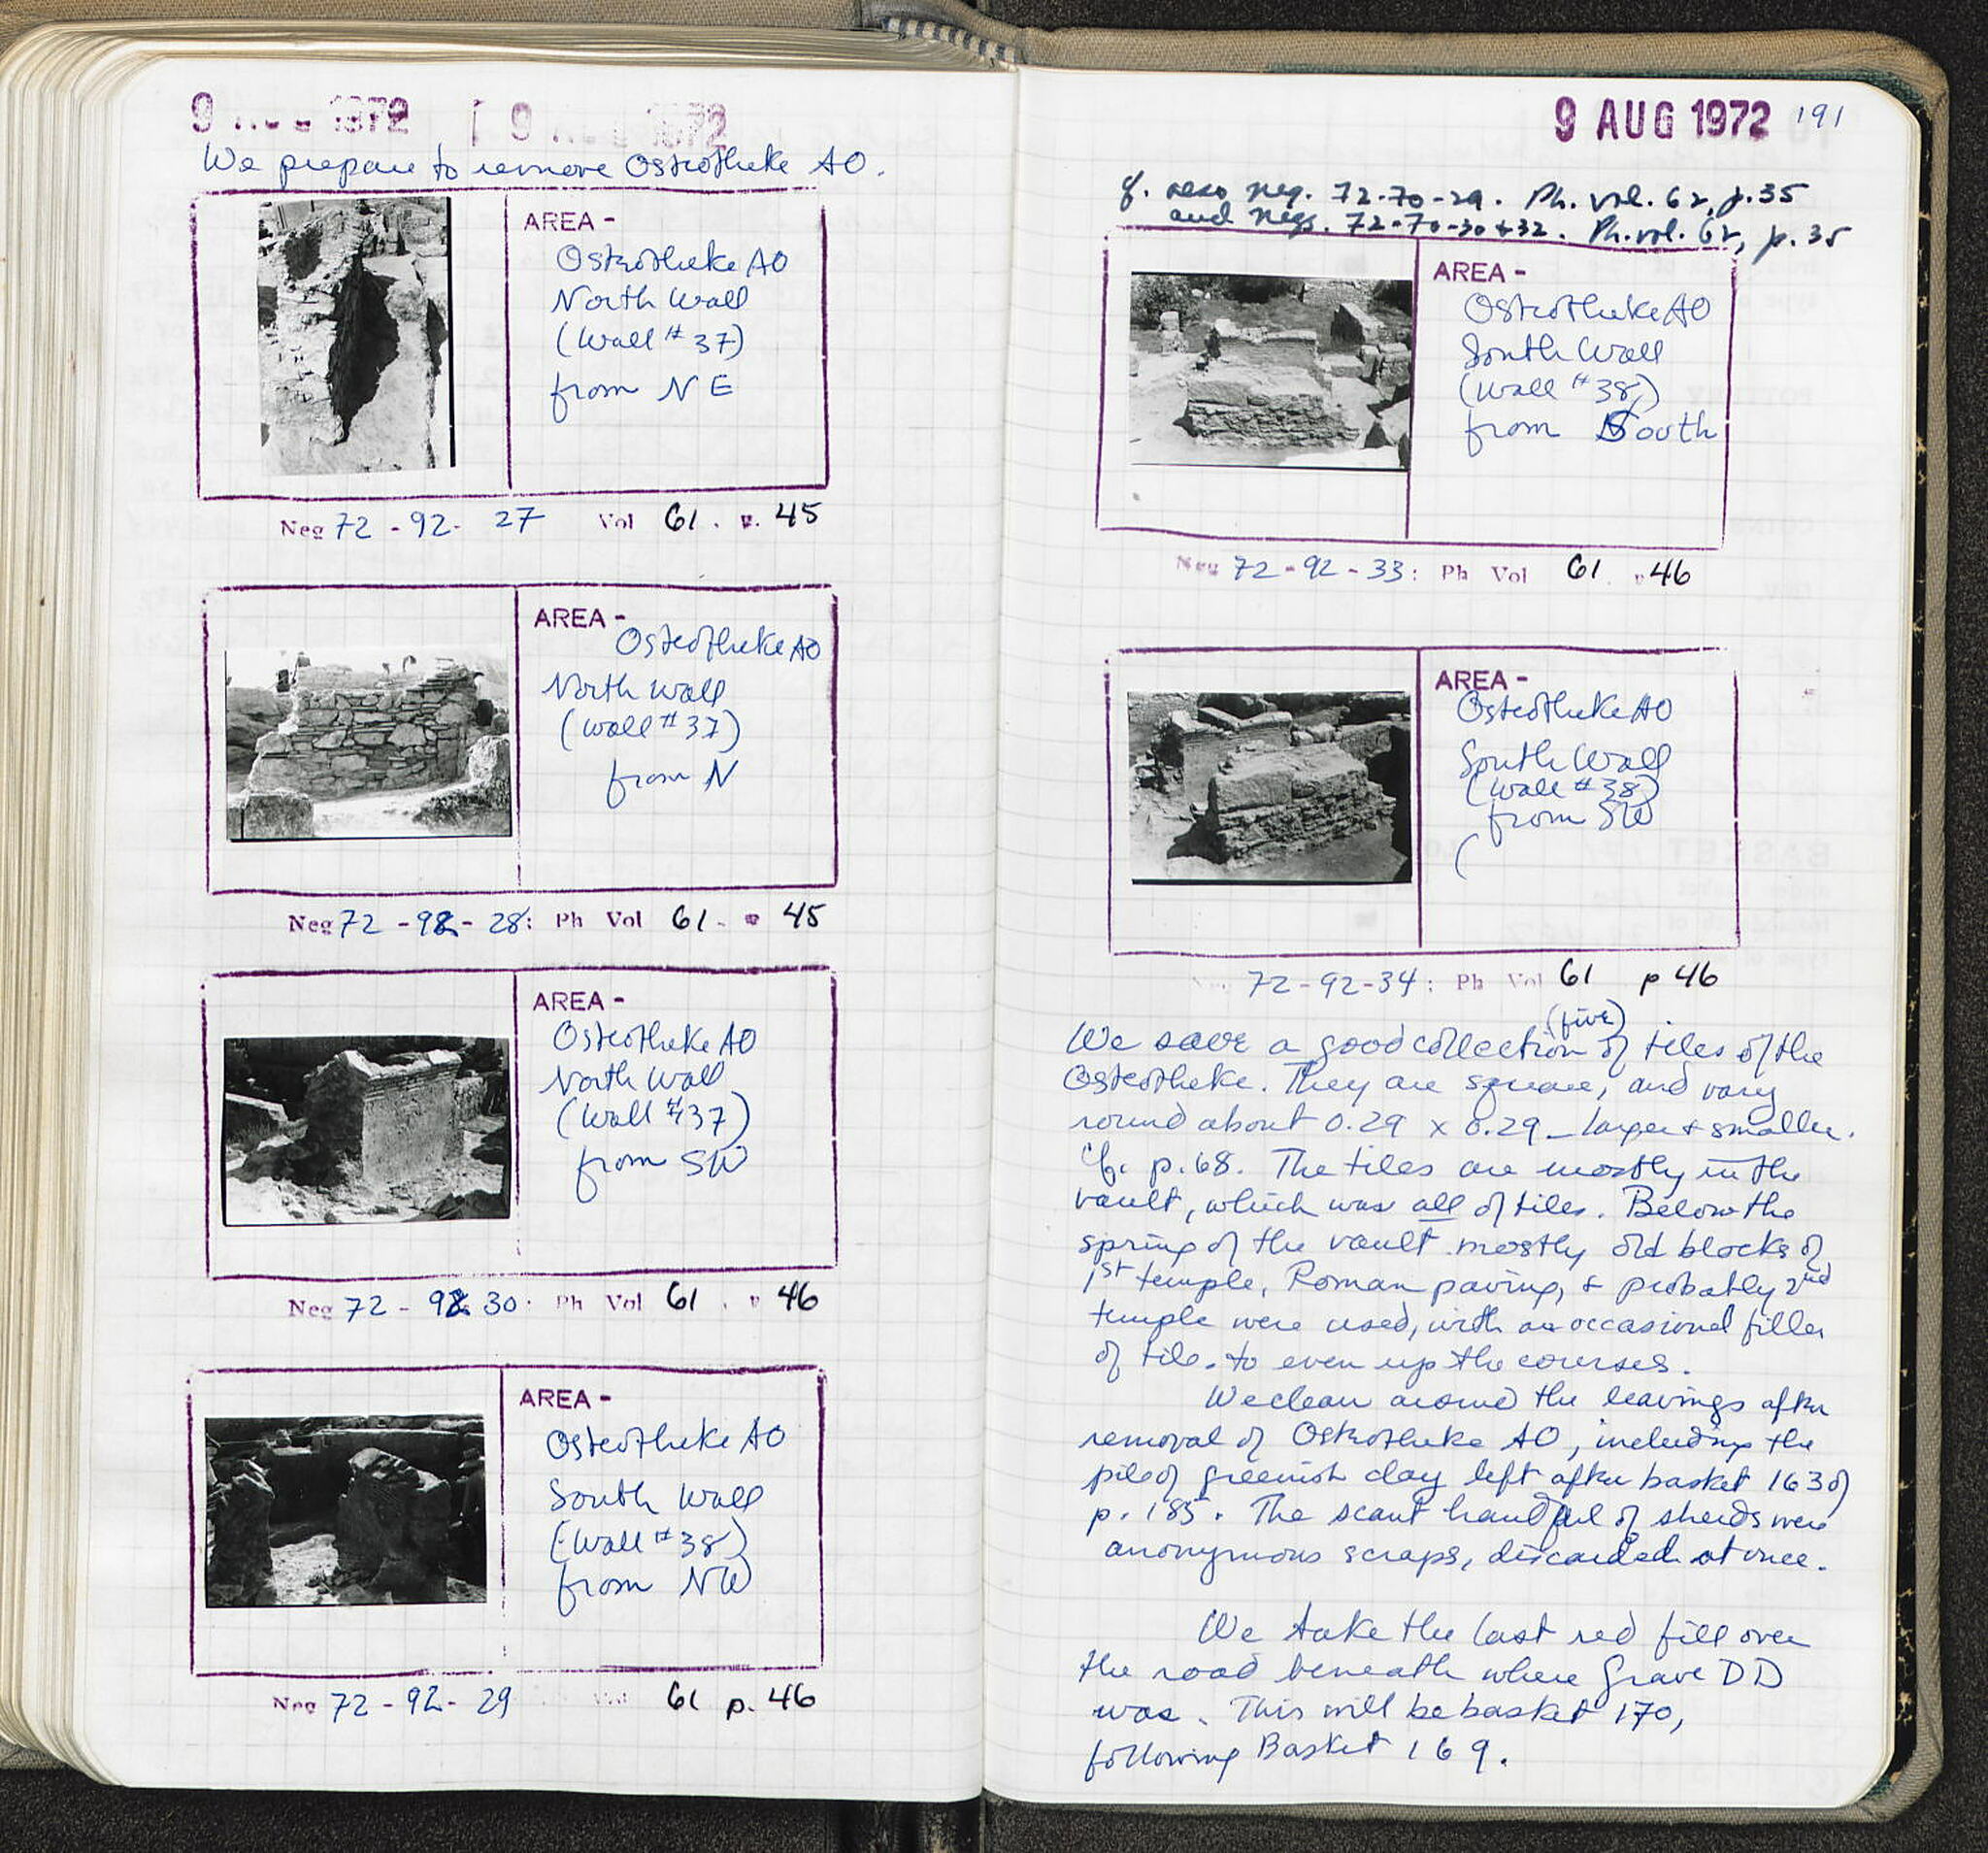 9 AUG 1972 19 AUG 1972
We prepare to remove Osteotheke AO.
AREA -
Osteotheke AO
North Wall
(Wall # 37)
from NE
Neg 72 - 92 - 27 Vol 61 . p. 45
AREA -
Osteotheke AO
North wall
(wall # 37)
from N
Neg 72 - 92 - 28: Ph Vol 61 - p 45
AREA -
Osteotheke AO
North Wall
(Wall # 37)
from SW
Neg 72 - 92 30: Ph Vol 61 . p 46
AREA -
Osteotheke AO
South Wall
(Wall # 38)
from NW
Neg 72 - 92 - 29 Vol 61 p. 46
9 AUG 1972 191
cf. also neg. 72-70-29. Ph. Vol. 62, p. 35
and negs. 72-70-30+32. Ph. vol. 62, p. 35
AREA -
Osteotheke AO
South Wall
(Wall # 38)
from South
Neg 72 - 92 - 33: Ph Vol 61 p 46
AREA -
Osteotheke AO
South Wall
(Wall # 38)
from SW
(
72-92-34: Ph Vol 61 p 46
(five)
We save a good collection of tiles of the
Osteotheke. They are square, and vary
round about 0.29 x 0.29 – larger & smaller.
Cf. p. 68. The tiles are mostly in the
vault, which was all of tiles. Below the
spring of the vault mostly old blocks of
1st temple, Roman paving, & probably 2nd
temple were used, with an occasional filler
of tile. to even up the courses.
We clean around the leavings after
removal of Osteotheke AO, including the
pile of greenish clay left after basket 163 of
p. 185. The scant handful of sherds were
anonymous scraps, discarded at once.
We take the last red fill over
the road beneath where Grave DD
was. This will be basket 170,
following Basket 169.